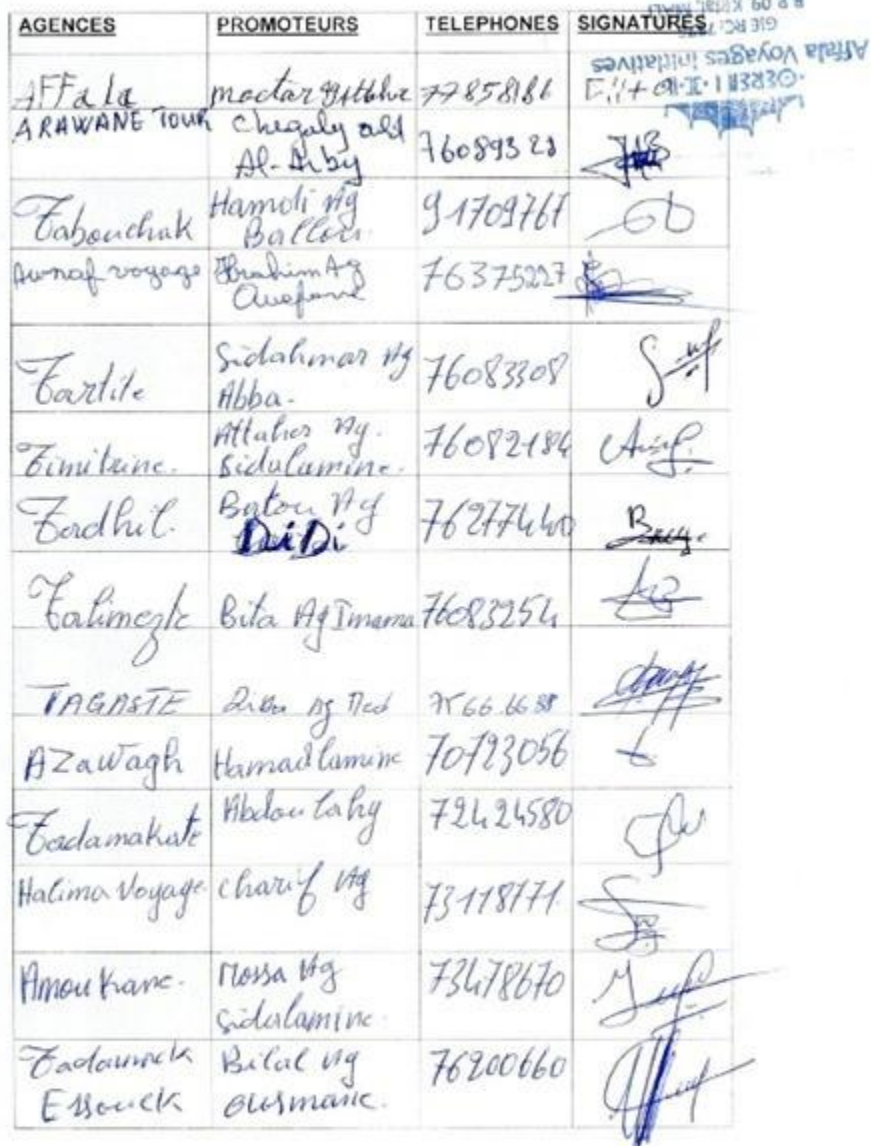 AGENCES PROMOTEURS TELEPHONES SIGNATURES
AFFala moctar 77858186
ARAWANE TOUR Chegaly ald
Al-Arby 76089328
Tabouchak Hamdi Ag
Ballou 91709767
Awnaf voyage Ibrahim Ag 76375227
Tartite Sidahmar Ag
Abba. 76083308
Timitrine. Attaher Ag.
Sidalamine. 76082184
Tadhil. Batou Ag
DiDi 76277440
Talimezk Bita Ag Imama 76083254
TAGASTE Ag 66.66
AZawagh Hamadlamine 70723056
Tadamakate Abdoulahy 72424580
Halima Voyage. charif Ag 73118771
Amoukrane. Mossa Ag
Sidalamine. 73478670
Bilal Ag
Essouck ousmane. 76200660
Affala Voyages Initiatives